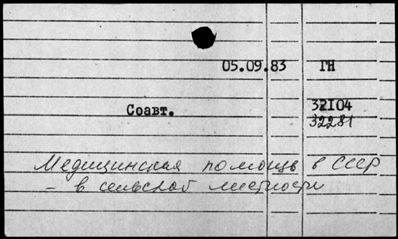 05.09.83 ГН
Соавт. 32104
32281
Медицинская помощь в СССР
- в сельской местности